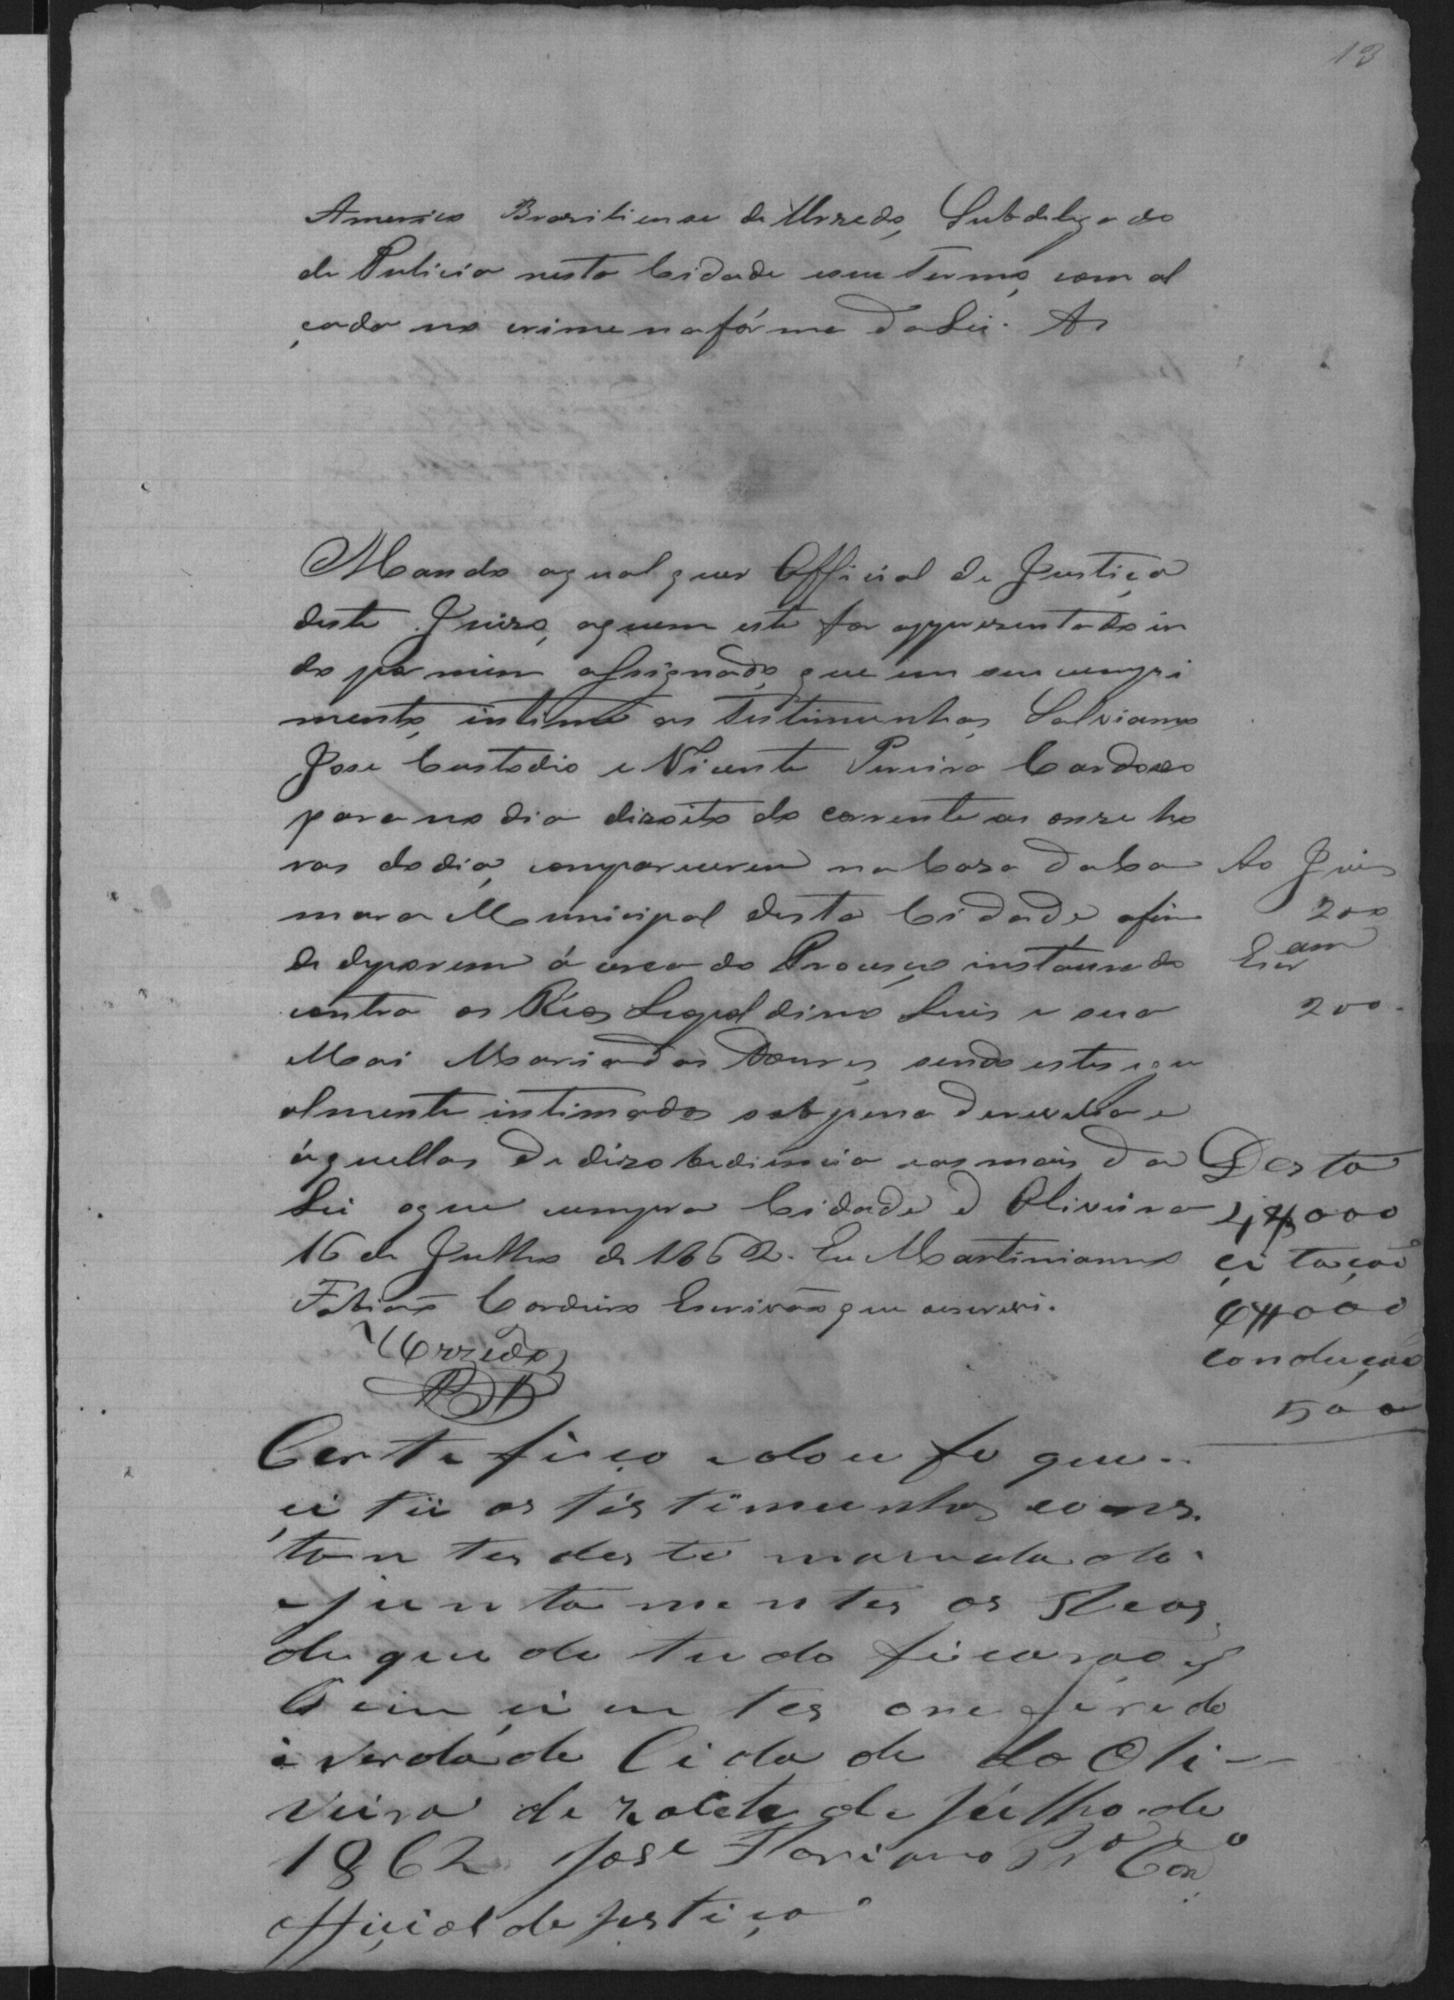 13
Americo Brasiliense de Urzedo, Subdelegado
de Pulicia nesta Cidade eseu Termo, com al
çada no crime na fórma da Lei. &c
Mando aqualquer Official de Justiça
deste Juizo, aquem este for appresentado in
do por mim assignado, que em seu cumpri
mento, intime as Testimunhas Salviano
Jose Custodio e Vicente Pereira Cardozo
para no dia dizoito do corrente as onze ho
ras do dia, comparecerem na Caza da Ca
mara Municipal desta Cidade, afim
de deporem á cerca do Processo instaurado
contra os Réos Legoldino Luis e sua
Mai Maria das Dores, sendo estes egu
almente intimados sob pena derevelia e
áquellas de dizobediencia easmais da
Lei oque cumpra Cidade d Oliveira
16 de Julho de 1862. Eu Martiniano
Fabião Cordeiro Escrivão que oescrevi.
Urzedo
Ao Juis
200
Escram
200
Desta
4$000
citação
4$000
condução
500
Certefico edou fe que
citii as testimunhas cons
tan tes deste mandado
ejunta mentes os Reos
de que de tudo ficarão
Cein ci en tes oreferedo
é verdade Cidade do Oli
veira dezacete de Julho de
1862 José Floriano Pr.º Con.º
official de justiça